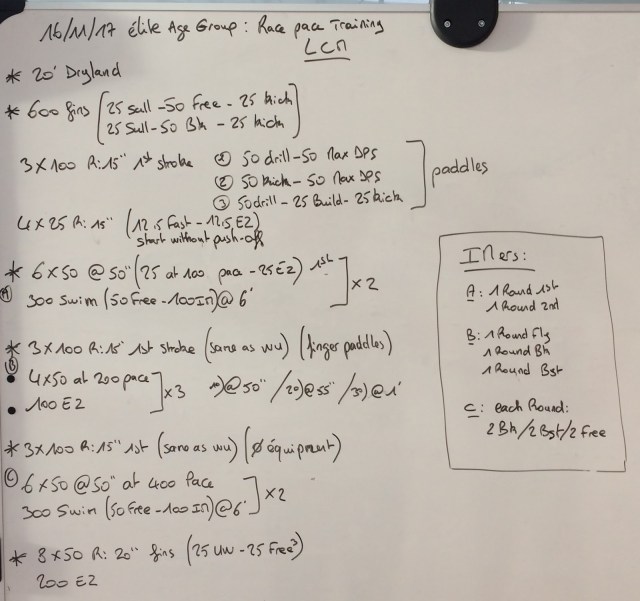 16/11/17 élite Age Group: Race pace Training
LCM
* 20' Dryland
* 600 fins (25 scull -50 Free - 25 kick
25 Scull-50 Bk - 25 kick)
3x100 R:15" 1st stroke ① 50 drill-50 Max DPS
② 50 kick - 50 Max DPS
③ 50drill - 25 Build- 25 kick
] paddles
4x25 R: 15" (12.5 Fast - 12.5 EZ)
start without push-off
* 6x50 @50" (25 at 100 pace - 25EZ) 1st
Ⓐ 300 Swim (50 Free -100IM)@ 6'
] x2
* 3x100 R:15" 1st stroke (same as wu) (finger paddles)
Ⓑ
• 4x50 at 200 pace
• 100 EZ
] x3 1°)@50" / 2°)@55" / 3°)@1'
* 3x100 R:15" 1st (same as wu) (Ø équipment)
Ⓒ 6x50 @50" at 400 Pace
300 Swim (50 Free -100 IM)@6'
] x2
* 8x50 R: 20" fins (25 UW - 25 Free³)
200 EZ
IMers:
A: 1 Round 1st
1 Round 2nd
B: 1 Round Fly
1 Round Bk
1 Round Bst
C: each Round:
2Bk/2Bst/2 Free